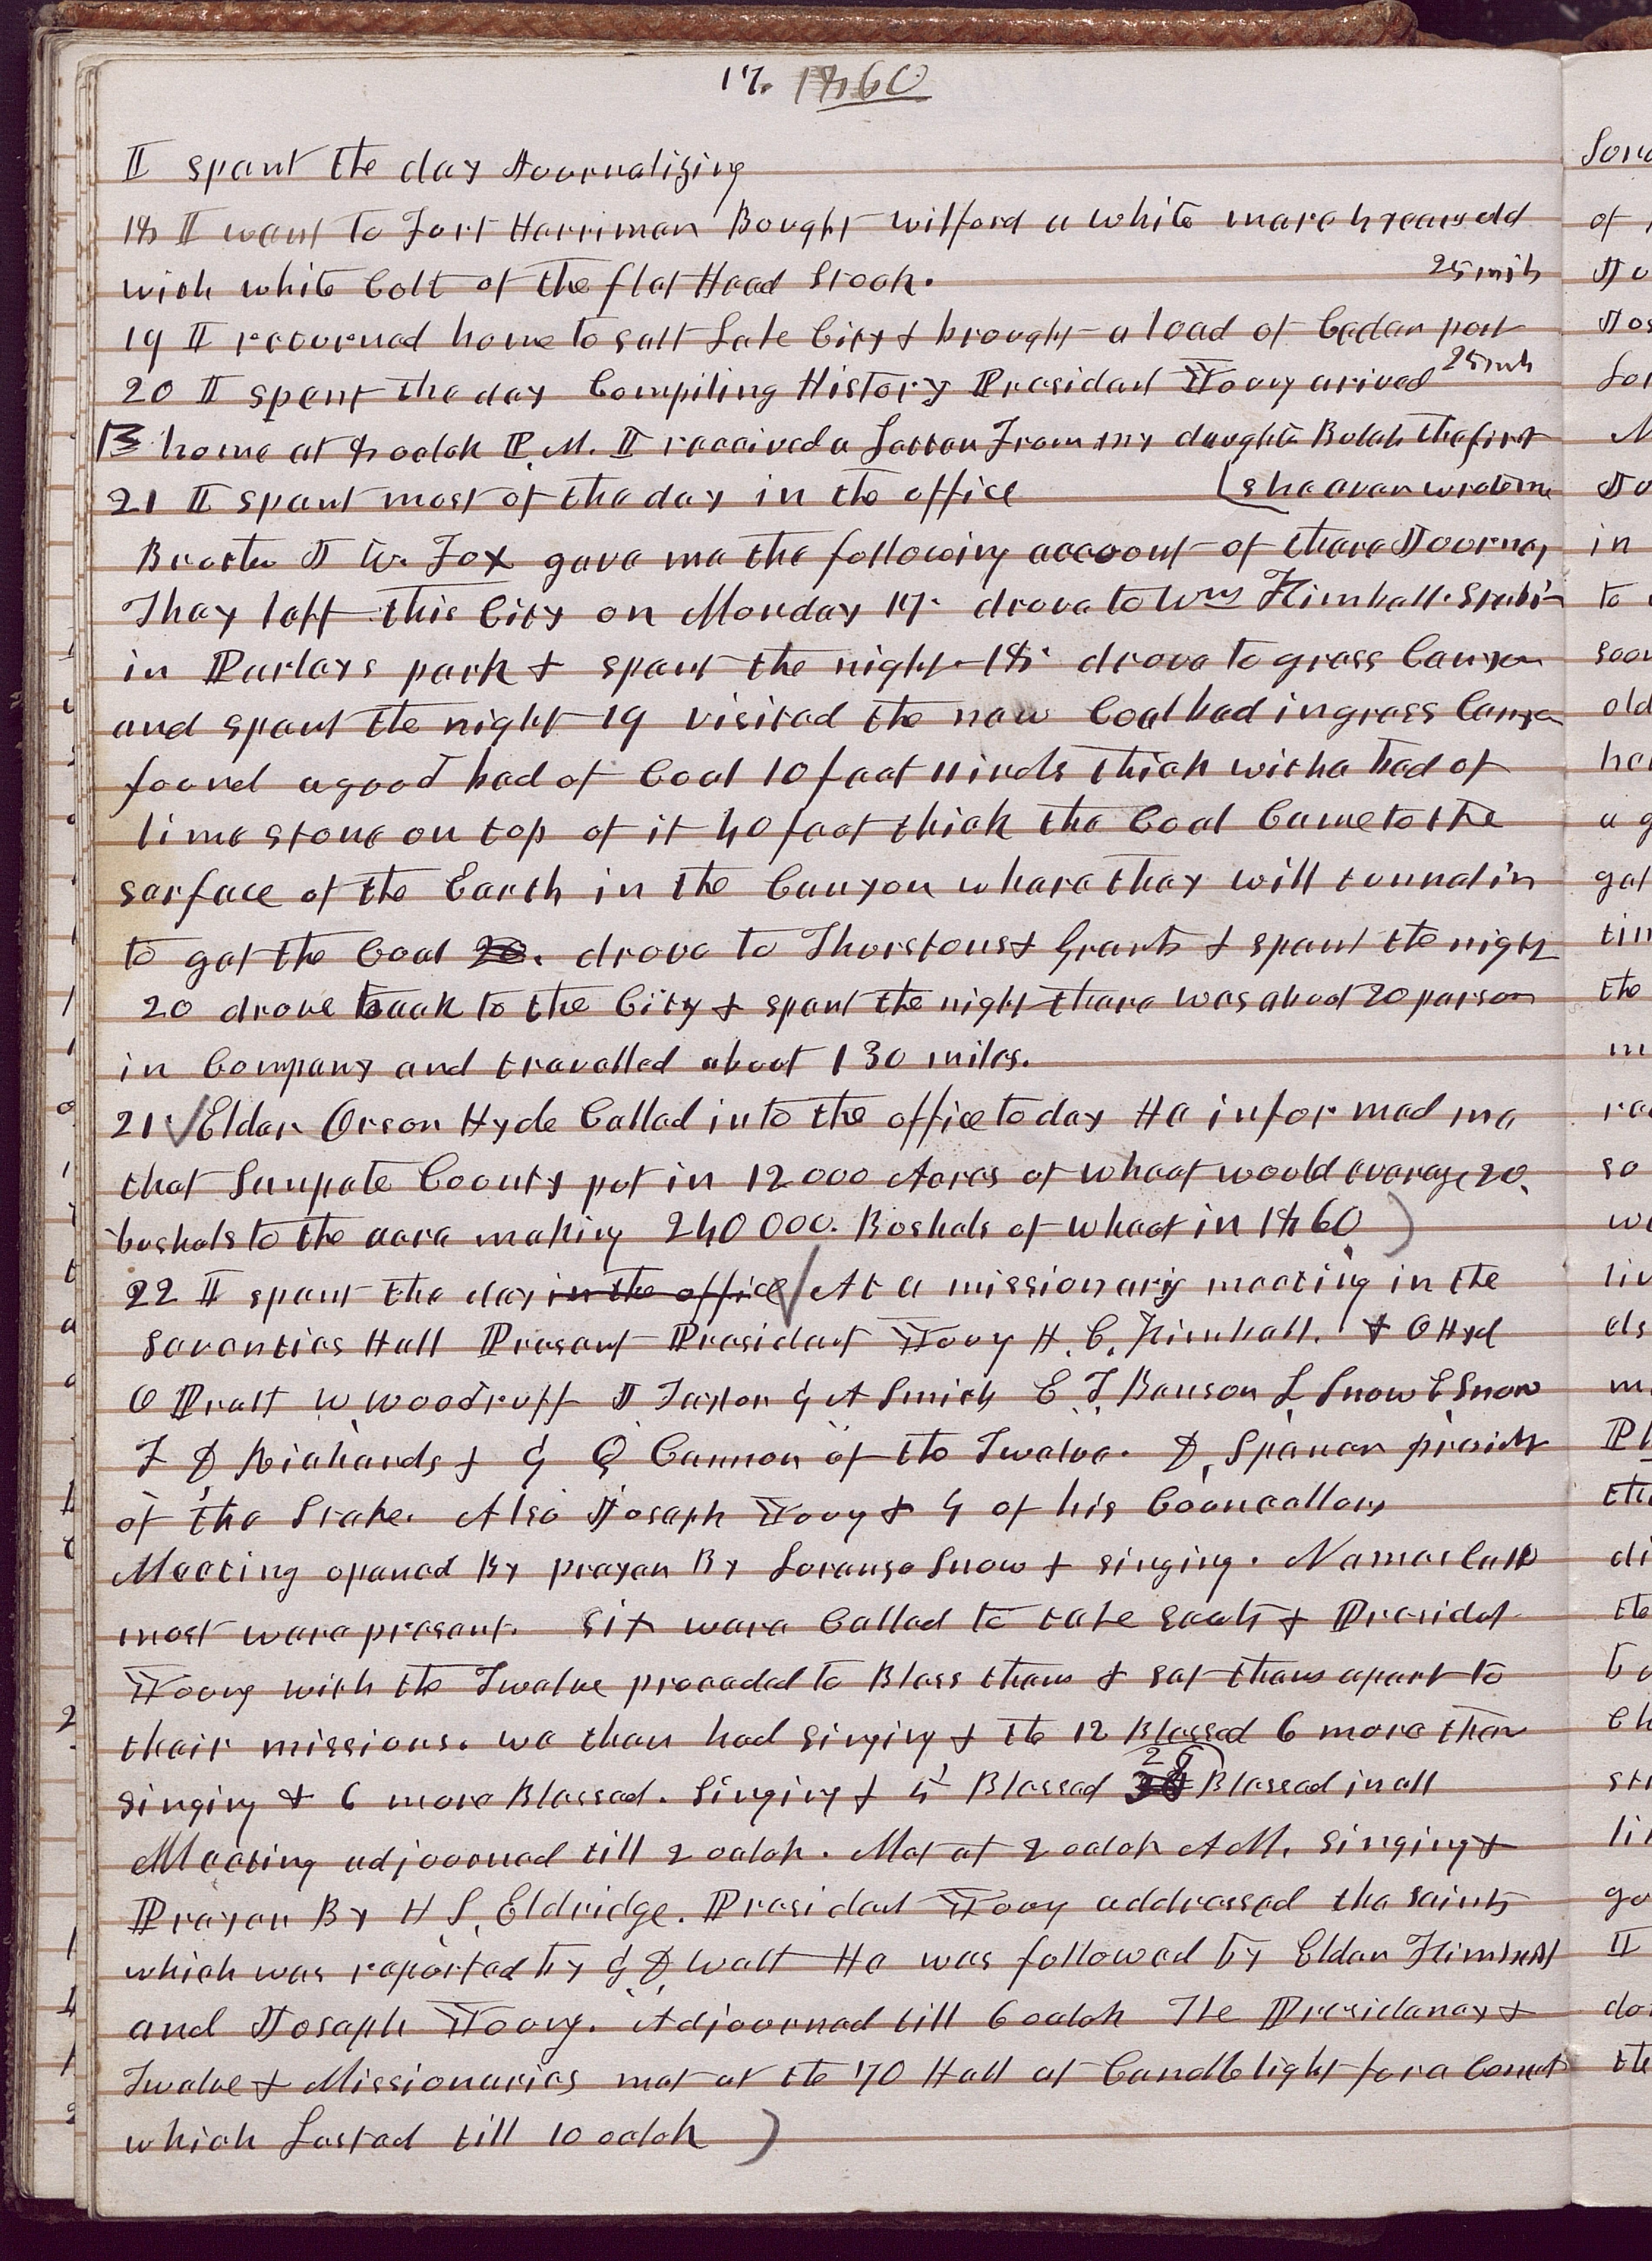 17. 1860
I spent the day Journalizing
18 I went to Fort Harriman Bought wilford a white mare 4 years old
with white Colt of the flat Head Stock. 25 mils
19 I returned home to Salt Lake City & brought a load of Cedar post
20 I spent the day Compiling History President Young arived 25 mls
home at 8 oclok P.M. I received a Letter From my daughter Bulah the first
21 I spent most of the day in the office [she ever wrote me
Brother J W. Fox gave me the following account of there Journey
They left this City on Monday 17. drove to Wms Kimball. Stabin
in Parleys park & spent the night 18. drove to grass Canyon
and spent the night 19 visited the new Coal bed in grass Canyon
found a good bed of Coal 10 feet
 thick with a bed of
lime stone on top of it 40 feet thick the Coal Came to the
sarface of the Earth in the Canyon where they will tunnel in
to get the Coal 20. drove to Thorstons & Grants & spent the night
20 drove back to the City & spent the night there was about 20 person
in Company and travelled about 130 miles.
21. Elder Orson Hyde Called into the office to day He informed me
that Sanpete County put in 12000 Acres of wheat would average 20.
bushels to the acre making 240000. Boshels of wheat in 1860)
22 I spent the day in the office At a missionary meeting in the
Seventies Hall Present President Young H. C. Kimball. & O Hyd
O Pratt W Woodruff J Taylor G A Smith E T, Benson L Snow E Snow
F D Richards & G Q Cannon of the Twelve. D, Spencer presidt
of the Stake. Also Joseph Young & 4 of his Councellors
Meeting opened By prayer By Loranzo Snow & singing. Names Calld
most were present. Six were Called to take seats & Presidet
Young with the Twelve proceded to Bless them & set them apart to
their missions. we then had singing & the 12 Blessed 6 more then
singing & 6 more Blessed. Singing & 5 Blessed 28 Blessed in all
Meeting adjoorned till 2 oclok. Met at 2 oclok A M. Singing &
Prayer By H S, Eldridge. President Young addressed the Saints
which was reported by G, D, Watt He was followed by Elder Kimball
and Joseph Young. Adjoorned till 6 oclok The Presidency &
Twelve & Missionaries met at the 70 Hall at Candle light for a
which Lasted till 10 oclok)